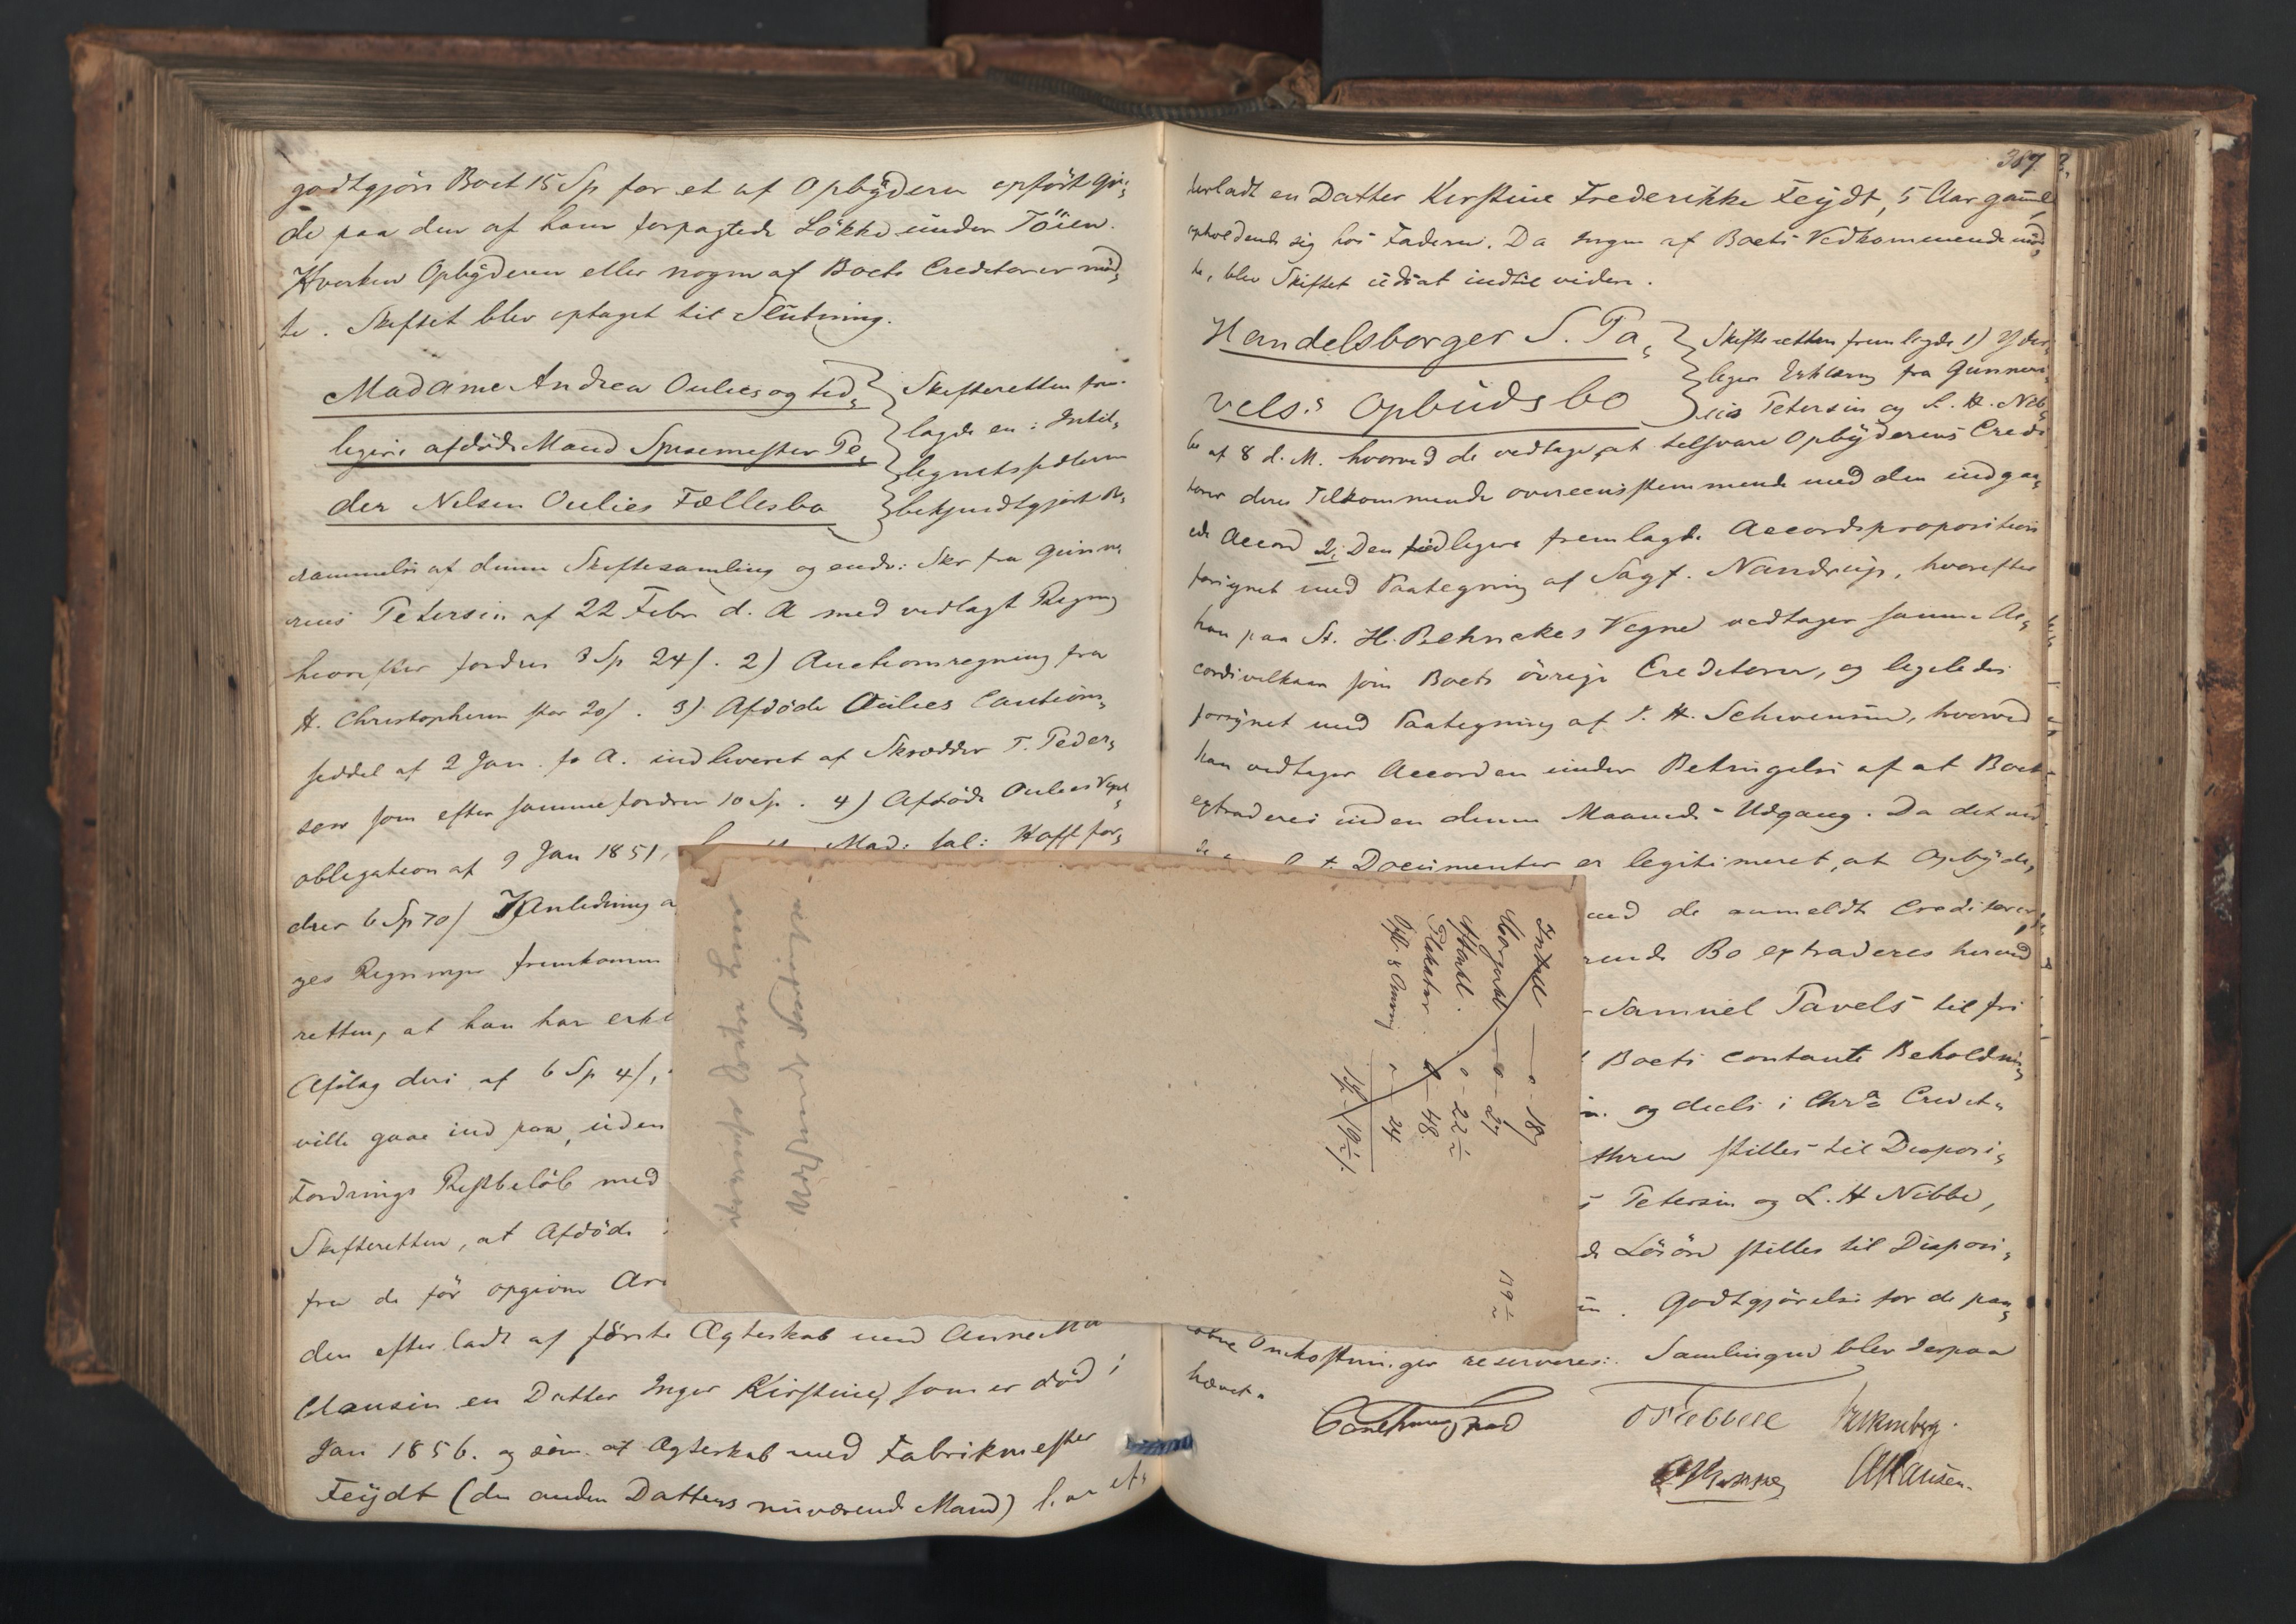 godtgjøre Boet 15 Sp for et af Opbyderen opført Gjer-
de paa den af ham forpagtede Løkke under Tøien.
Hverken Opbyderen eller nogen af Boets Creditorer mød-
te. Skiftet blev optaget til Slutning.
Madame Andrea Oulies og tid-
ligere afdøde Mand Spisemester Pe-
der Nilsen Oulies Fællesbo
Skifteretten frem-
lagde en i Intel-
ligentssedlerne
bekjendtgjort Be-
rammelse af denne Skiftesamling og endv: Skr fra Gunne-
rius Petersen af 22 Febr d. A med vedlagt Regning
hvorefter fordres 3 Sp 24 s. 2) Auctionsregning fra
H. Christophersen stor 20 s. 3) Afdøde Oulies Cautions-
seddel af 2 Jan. f. A. indleveret af Skrædder T. Peder-
sen som efter samme fordrer 10 Sp. 4) Afdøde Oulies
obligation af 9 Jan 1851, Mad: sal: Hoff for-
drer 6 Sp 70 s I Anledning a
ges Regninger fremkomm
retten, at han har erkl
Afslag deri af 6 Sp 4 s,
ville gaae ind paa, uden
Fordrings Restbeløb med
Skifteretten, at Afdøde
fra de før opgivne Arv
den efterladt af første Ægteskab med Anne Ma
Clausen en Datter Inger Kirstine, som er død i
Jan 1856. og som af Ægteskab med Fabrikmester
Feydt (den anden Datters nuværende Mand) har ef-
387.
terladt en Datter Kirstine Frederikke Feydt, 5 Aar gammel
opholdende sig hos Faderen. Da Ingen af Boets Vedkommende mød-
te, blev Skiftet udsat indtil videre.
Handelsborger S. Pa-
vels's Opbudsbo
Skifteretten fremlagde 1) Yder-
ligere Erklæring fra Gunneri-
us Petersen og L. H. Nib-
be af 8 d. M. hvorved de vedtage, at tilsvare Opbyderens Credi-
torer deres Tilkommende overeensstemmende med den indgaa-
ede Accord 2, Den tidligere fremlagde Accordsproposition
forsynet med Paategning af Sagf. Nandrup, hvorefter
han paa St. H. Behnckes Vegne vedtager samme Ac-
cordsvilkaar som Boets øvrige Creditorer, og ligeledes
forsynet med Paategning af J. H. Schwensen, hvorved
han vedtager Accorden under Betingelse af at Boet
extraderes inden denne Maaneds Udgang. Da det ved
Documenter er legitimeret, at Opbyde-
med de anmeldte Creditorer,
rende Bo extraderes herved
Samuel Pavels til fri
Boets contante Beholdning
og deels i Chra Credit-
thren stilles til Disposi-
Petersen og L. H Nibbe,
de Løsøre stilles til Disposi-
Godtgjørelse for de paa-
løbne Omkostninger reserveres. Samlingen blev derpaa
hævet.
AHansen.
Intell — o - 18
Morgenbl — o - 27
Aftenbl. o - 22 ½
Plakater o - 48.
o - 24
1 - 19 ½.